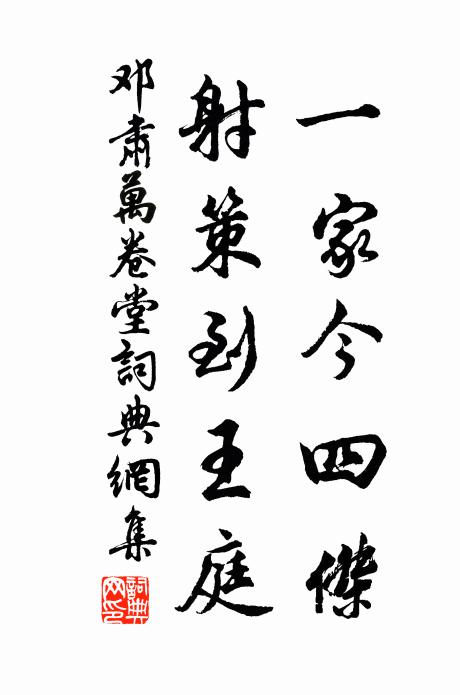 一家今四傑
射策到王庭
邓肅萬卷堂詞典網集
詞典网印